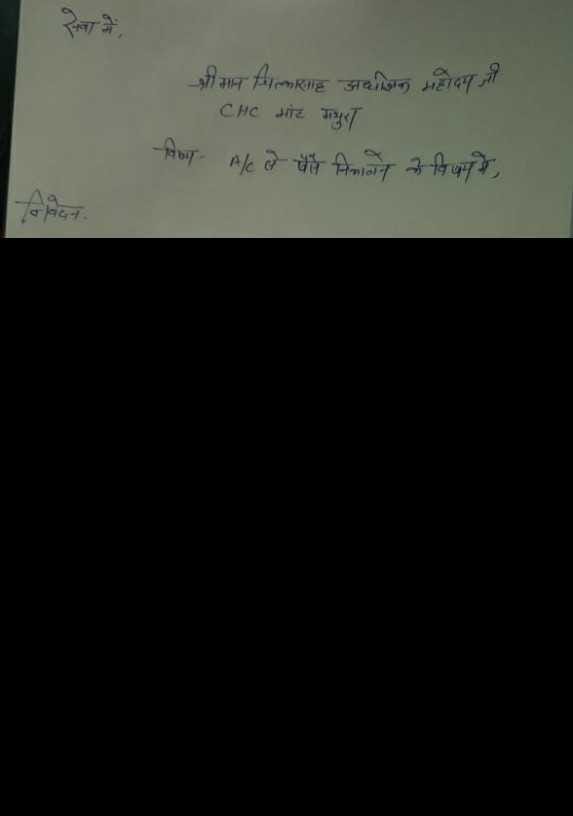 सेवा में,
श्रीमान चिकित्सा अधीक्षक महोदय जी
CHC मांट मथुरा
विषय- A/C से पैसे निकालने के विषय में,
निवेदन.